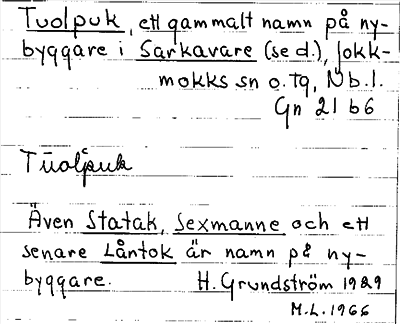 Tuolpuk, ett gammalt namn på ny-
byggare i Sarkavare (se d.), Jokk-
mokks sn o. tg, Nb. l.
Gn 21 b 6
Tuolpuk
Även Statak, Sexmanne och ett
senare Låntok är namn på ny-
byggare. H. Grundström 1929
M.L. 1966